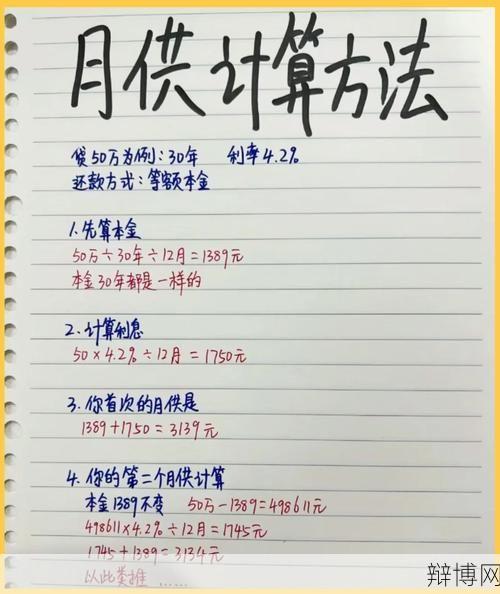 月供计算方法
贷50万为例:30年 利率4.2%
还款方式:等额本金
1.先算本金
50万÷30年÷12月=1389元
本金30年都是一样的
2.计算利息
50×4.2%÷12月=1750元
3.你首次的月供是
1389+1750=3139元
4.你的第二个月供计算
本金1389不变 50万-1389=498611元
498611×4.2%÷12月=1745元
1745+1389=3134元
以此类推......
辩博网